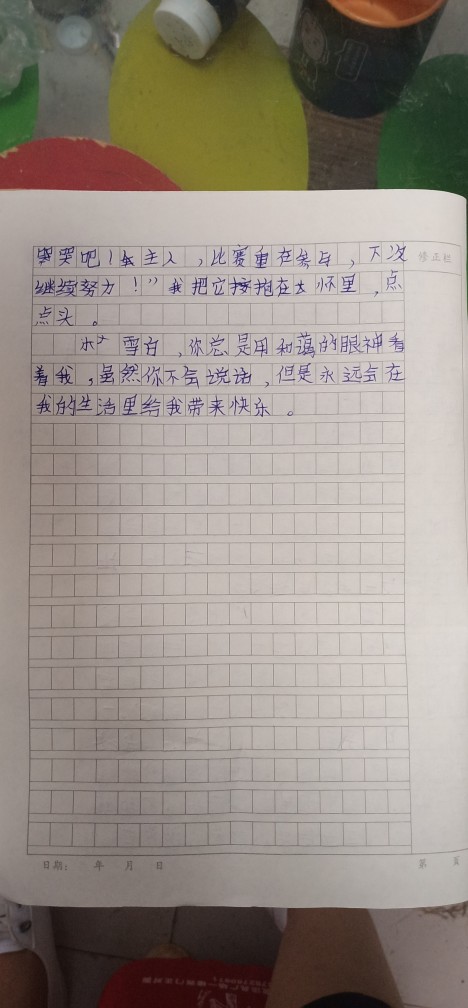 哭哭吧!主人,比赛重在参与,下次
修正栏
继续努力!"我把它抱在大怀里,点
点头。
雪白,你总是用和蔼的眼神看
着我,虽然你不会说话,但是永远会在
我的生活里给我带来快乐。
日期: 年 月 日
第 页